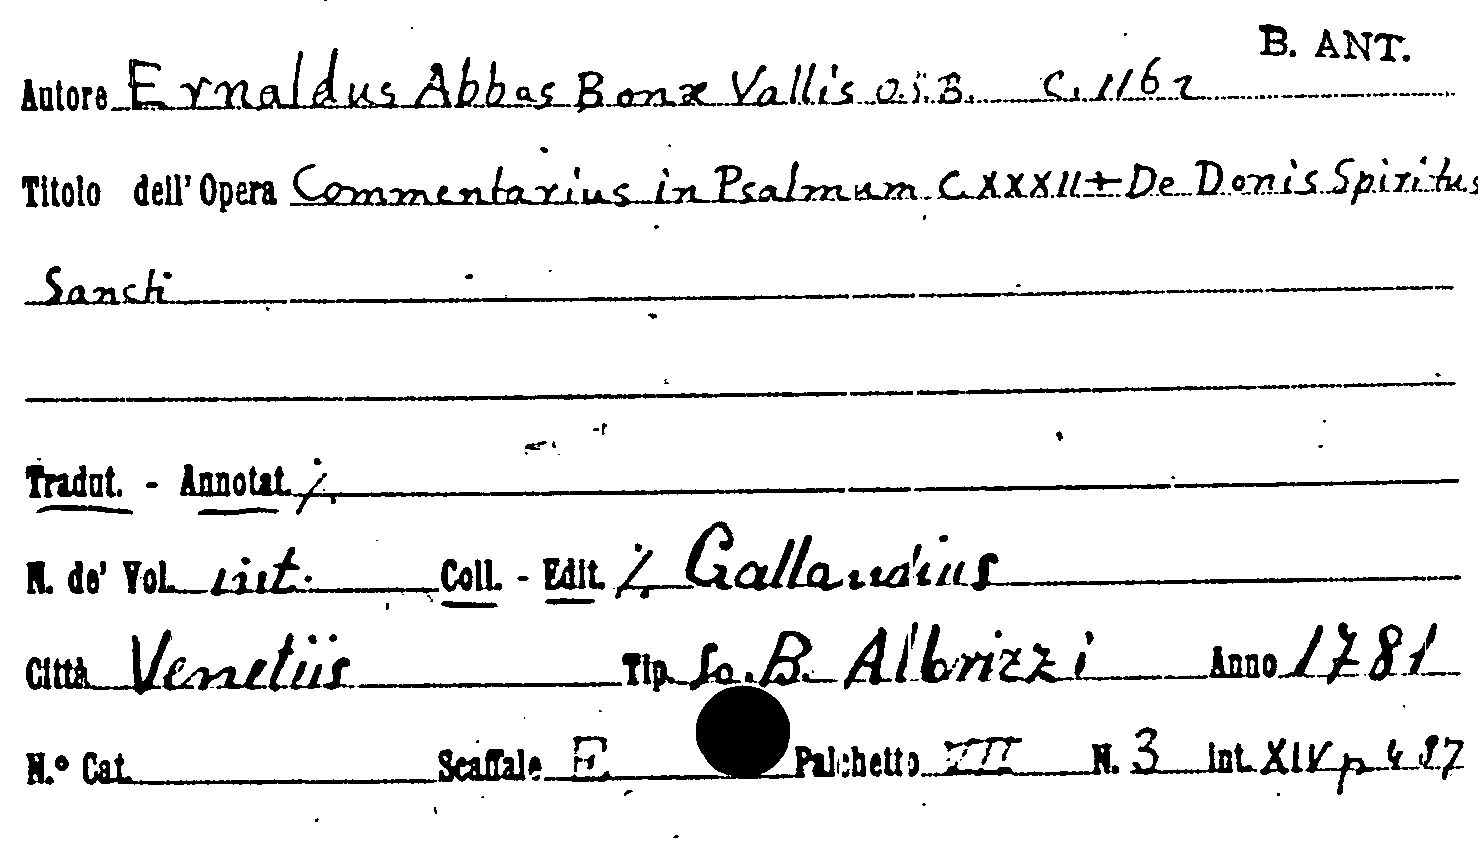 B. ANT.
Autore Ernaldus Abbas Bonæ Vallis O.S.B. C. 1162
Titolo dell' Opera Commentarius in Psalmum CXXXII + De Donis Spiritus
Sancti
Tradut. - Annotat. /.
N. de' Vol. int. Coll. - Edit. /. Gallandius
Città Venetiis Tip. Jo. B. Albrizzi Anno 1781
N.° Cat. Scaffale E Palchetto VII N. 3 int. XIV p 437